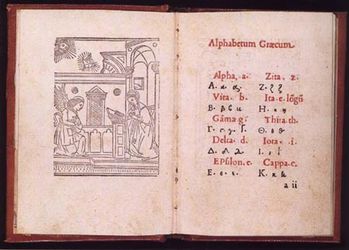 Alphabetum Græcum.
Alpha, a. Zita z.
Α α Ζ ζ
Vita. b. Ita e. lõgũ
Β β Η η
Gãma g. Thita. th.
Γ γ Θ θ
Delta. d. Iota. i.
Δ δ Ι ι
EPſilon. e. Cappa c.
Ε ε Κ κ
a ii